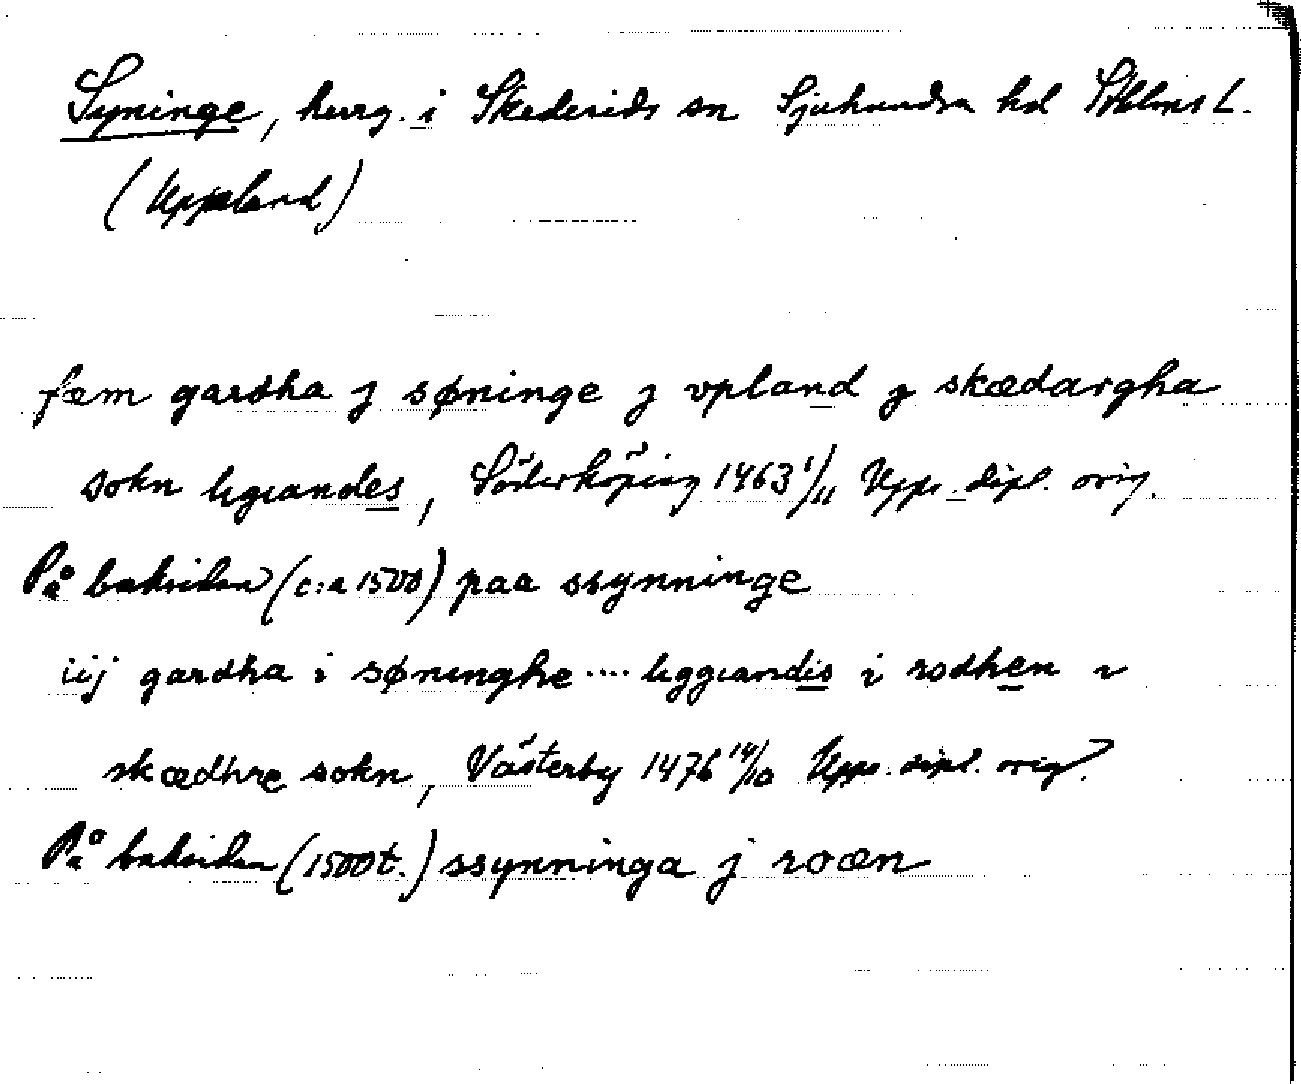 Syninge, herrg. i Skederids sn Sjuhundra hd Sthlms L.
(Uppland)
fæm gardha j søninge j vpland j skædargha
sokn ligiandes, Söderköping 1463 1/11 Upps. dipl. orig.
På baksidan (c:a 1500) paa ssynninge
iiij gardha i søninghe .... liggiandis i rodhen i
skædhre sokn, Västerby 1476 14/10 Upps. dipl. orig.
På baksidan (1500t.) ssynninga j roæn